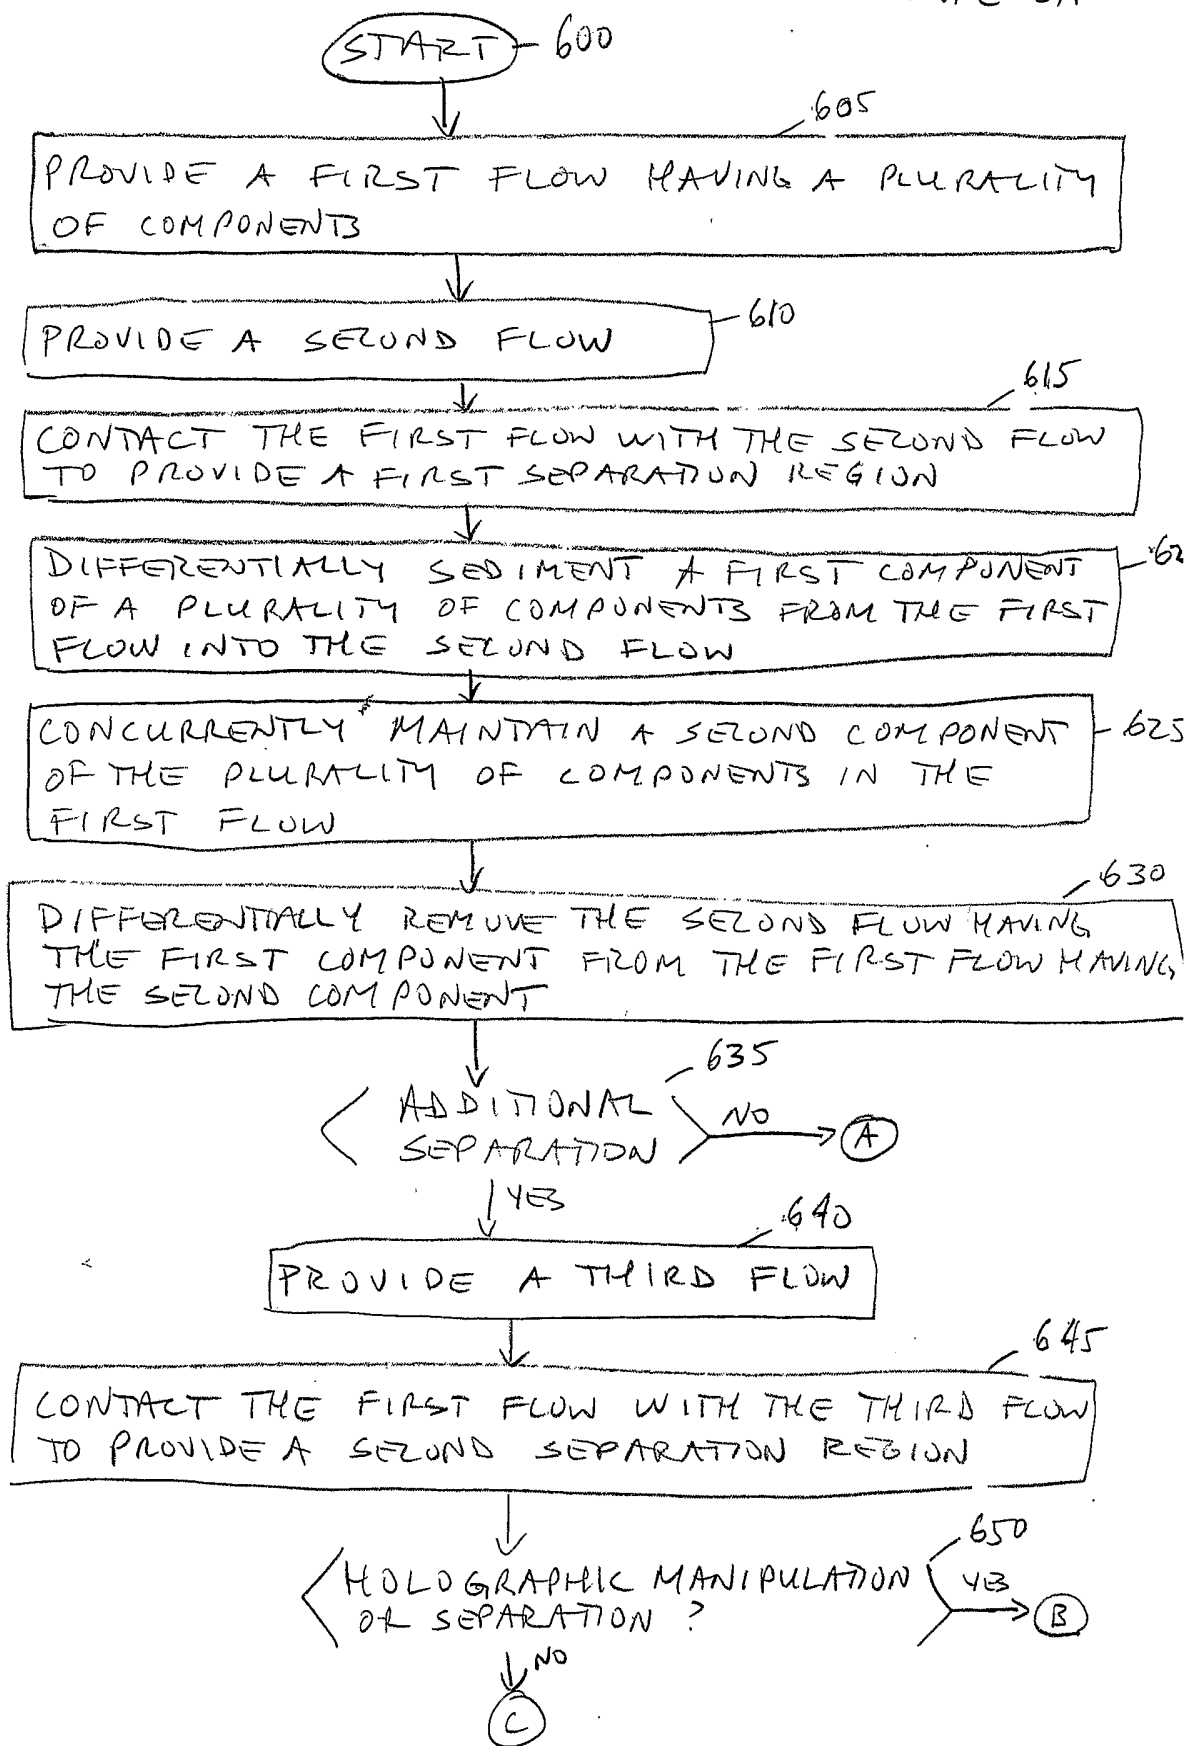 START 600
605
PROVIDE A FIRST FLOW HAVING A PLURALITY
OF COMPONENTS
PROVIDE A SECOND FLOW 610
615
CONTACT THE FIRST FLOW WITH THE SECOND FLOW
TO PROVIDE A FIRST SEPARATION REGION
DIFFERENTIALLY SEDIMENT A FIRST COMPONENT 62
OF A PLURALITY OF COMPONENTS FROM THE FIRST
FLOW INTO THE SECOND FLOW
CONCURRENTLY MAINTAIN A SECOND COMPONENT 625
OF THE PLURALITY OF COMPONENTS IN THE
FIRST FLOW
630
DIFFERENTIALLY REMOVE THE SECOND FLOW HAVING
THE FIRST COMPONENT FROM THE FIRST FLOW HAVING
THE SECOND COMPONENT
635
ADDITIONAL NO A
SEPARATION
YES
640
PROVIDE A THIRD FLOW
645
CONTACT THE FIRST FLOW WITH THE THIRD FLOW
TO PROVIDE A SECOND SEPARATION REGION
650
HOLOGRAPHIC MANIPULATION YES B
OR SEPARATION ?
NO
C